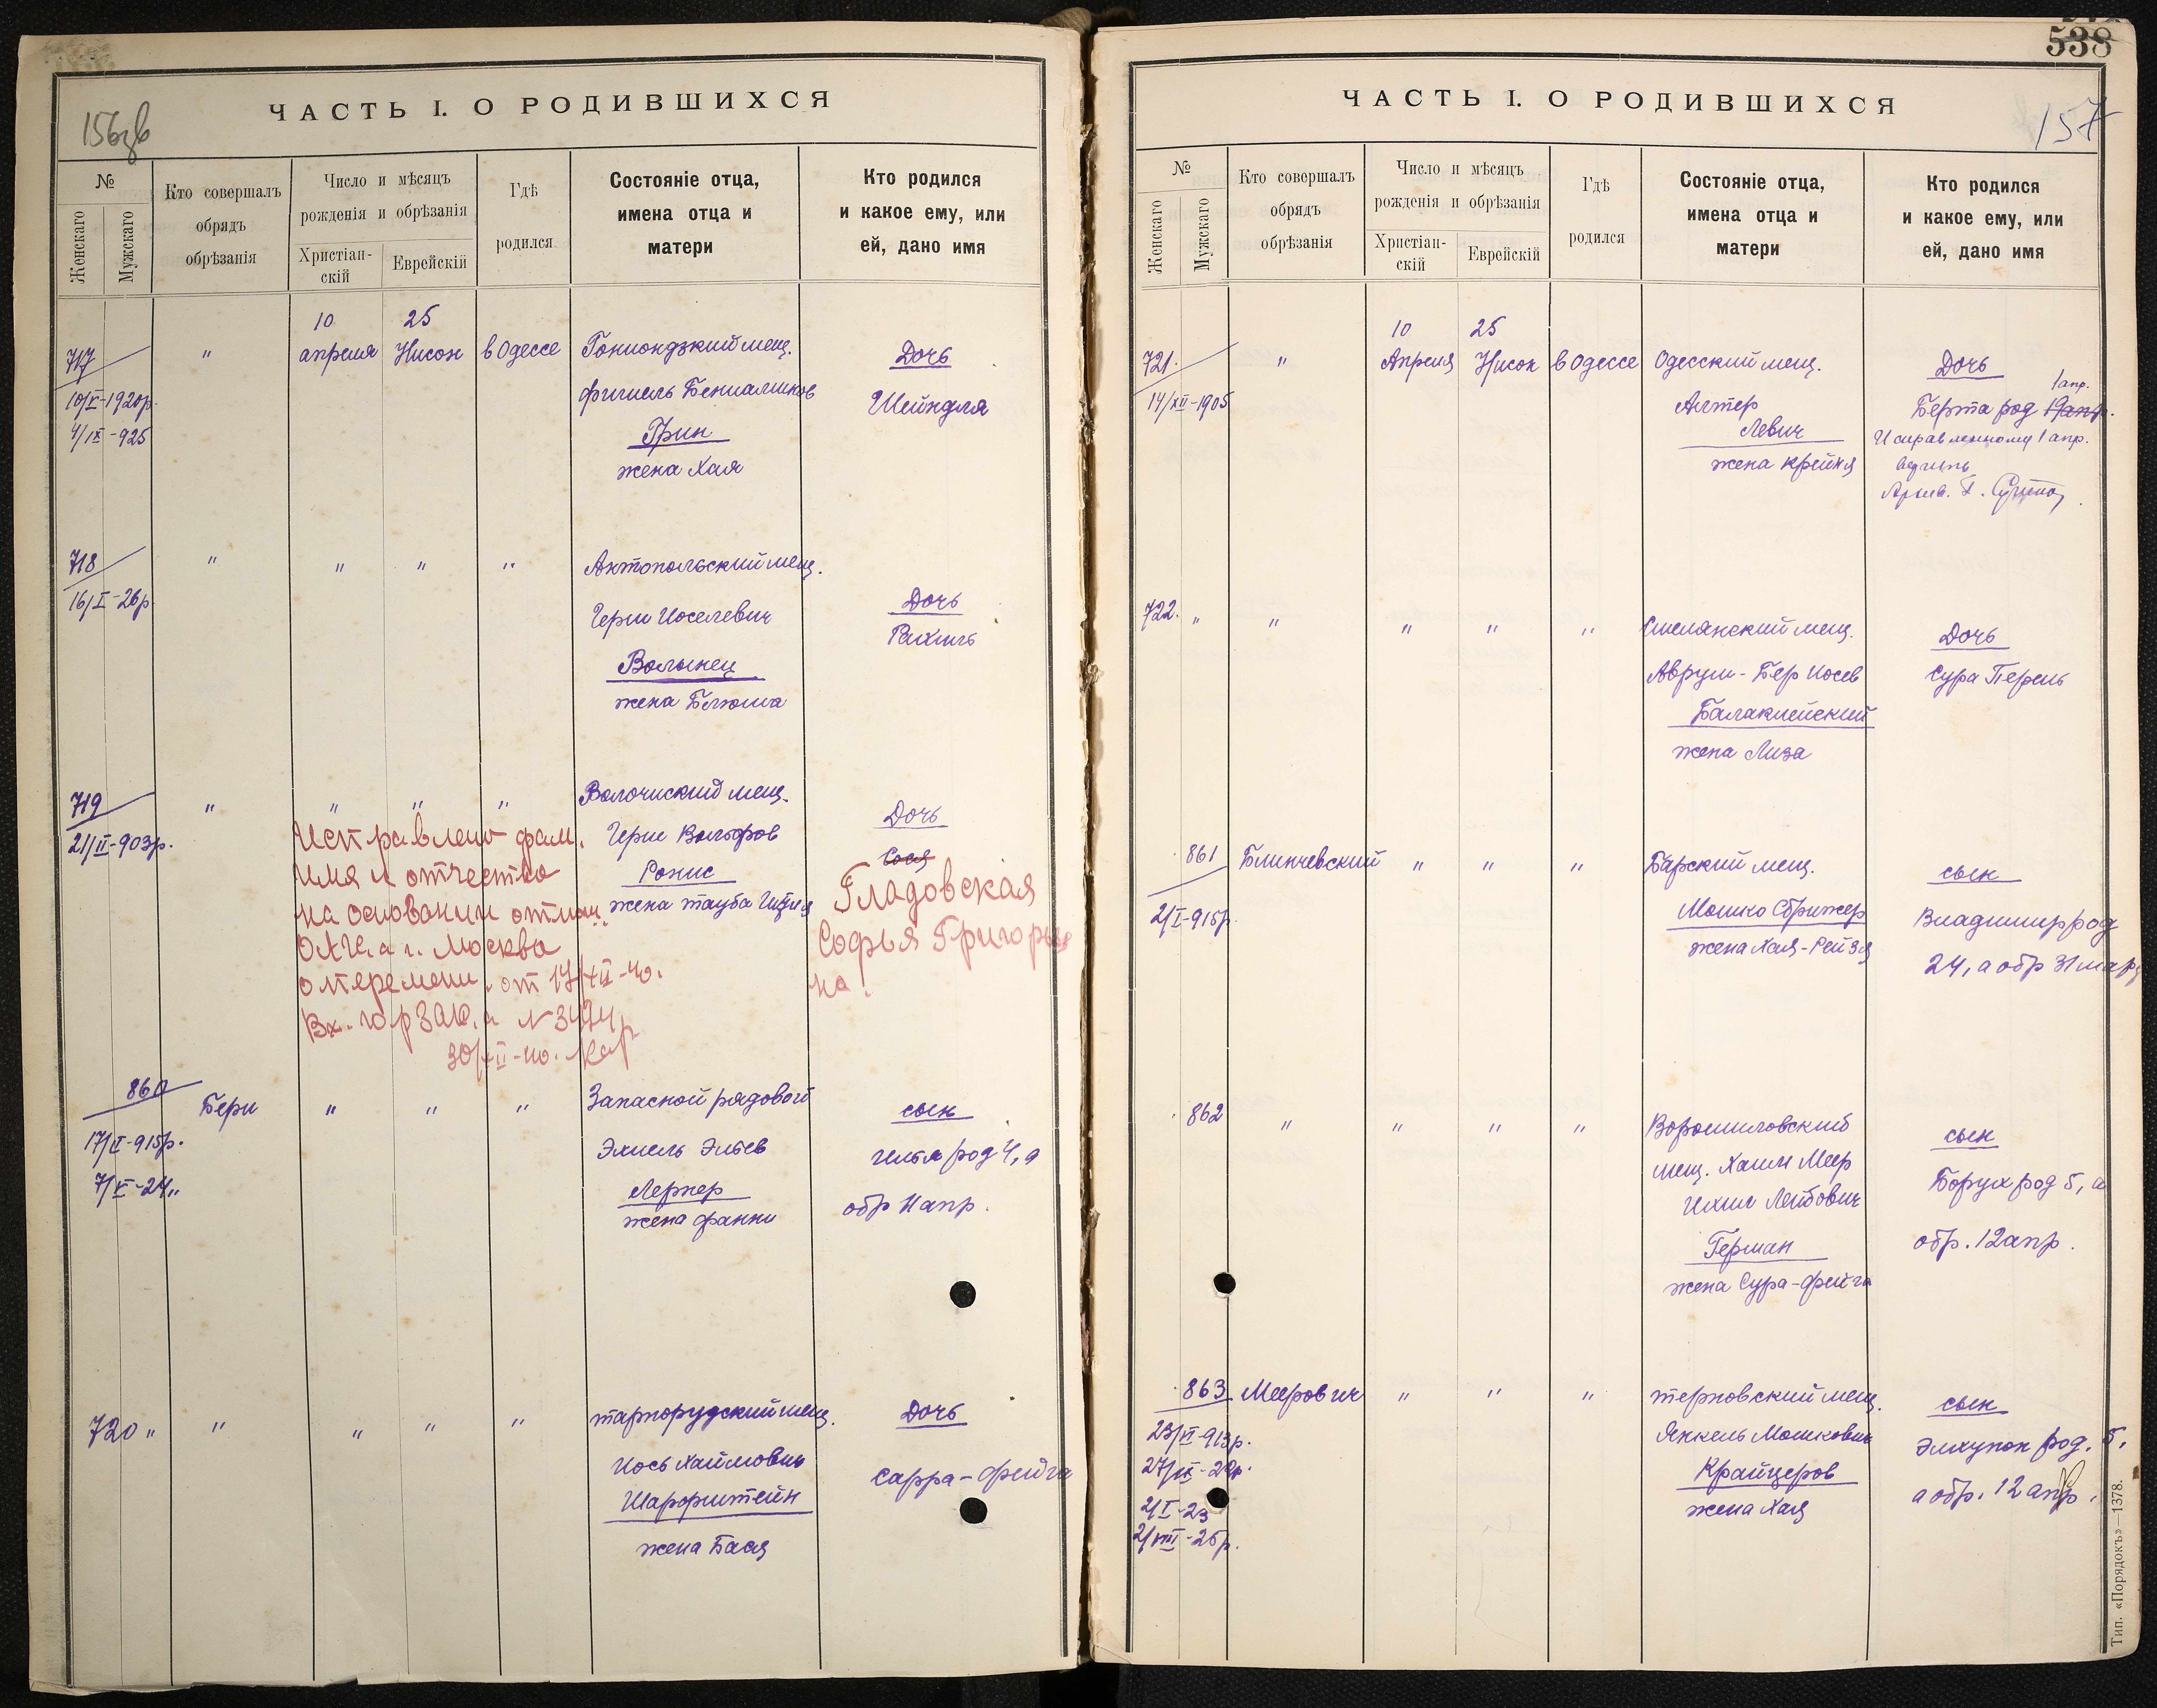 156 зв
ЧАСТЬ I. О РОДИВШИХСЯ
№
Женскаго
Мужскаго
Кто совершалъ
обрядъ
обрѣзанія
Число и мѣсяцъ
рожденія и обрѣзанія
Христіан-
скій
Еврейскій
Гдѣ
родился
Состояніе отца,
имена отца и
матери
Кто родился
и какое ему, или
ей, дано имя
717
10/V-1920р.
4/IX-925
"
10
апреля
25
Нисон
в Одессе
Гониондзкий мещ.
Фишель Бениаминов
Грин
жена Хая
Дочь
Шейндля
718
16/I-26р
"
"
"
"
Антопольский мещ.
Герш Иоселевич
Волынец
жена Блюма
Дочь
Рахиль
719
21/II-903р.
"
"
"
"
Волочиский мещ.
Герш Вольфов
Ронис
жена Тауба
Дочь
Сося
Исправлено фам.
имя и отчество
на основании
г. Москва
от 17/XII-40.
Вх. № 3494
30/XII-40.
Гладовская
Софья Григорьев
на.
860
17/II-915р.
7/V-24"
Бери
"
"
"
Запасной рядовой
Эхиель Эльев
Лернер
жена Фанни
сын
Илья род 4, а
обр 11 апр.
720 "
"
"
"
"
Тарнорудский мещ.
Иось Хаимович
Шарфштейн
жена Бася
Дочь
Сарра-Фейга
538
157
ЧАСТЬ I. О РОДИВШИХСЯ
№
Женскаго
Мужскаго
Кто совершалъ
обрядъ
обрѣзанія
Число и мѣсяцъ
рожденія и обрѣзанія
Христіан-
скій
Еврейскій
Гдѣ
родился
Состояніе отца,
имена отца и
матери
Кто родился
и какое ему, или
ей, дано имя
721.
14/XII-1905
"
10
Апреля
25
Нисон
в Одессе
Одесский мещ.
Алтер
Левич
жена Крейня
Дочь
1 апр.
Берта род 19 апр.
Исправленному 1 апр.
верить
722. "
"
"
"
"
Смелянский мещ.
Аврум-Бер Иосев
Балаклейский
жена Лиза
Дочь
Сура Перель
861
2/I-915р.
Блинчевский
"
"
"
Барский мещ.
Мошко Сбрижер
жена Хая-Рейзя
сын
Владимир род
24, а обр 31 мар
862
"
"
"
"
Ворошиловский
мещ. Хаим Меер
Ихил Лейбович
Герман
жена Сура-Фейга
сын
Борух род 5, а
обр. 12 апр.
863
23/VI-913р.
2/I-23
2/VIII-25р.
Меерович
"
"
"
Терновский мещ.
Янкель Мошкович
Крайцеров
жена Хая
сын
Элхунон род. 5,
а обр. 12 апр.
Тип. «Порядокъ»—1378.